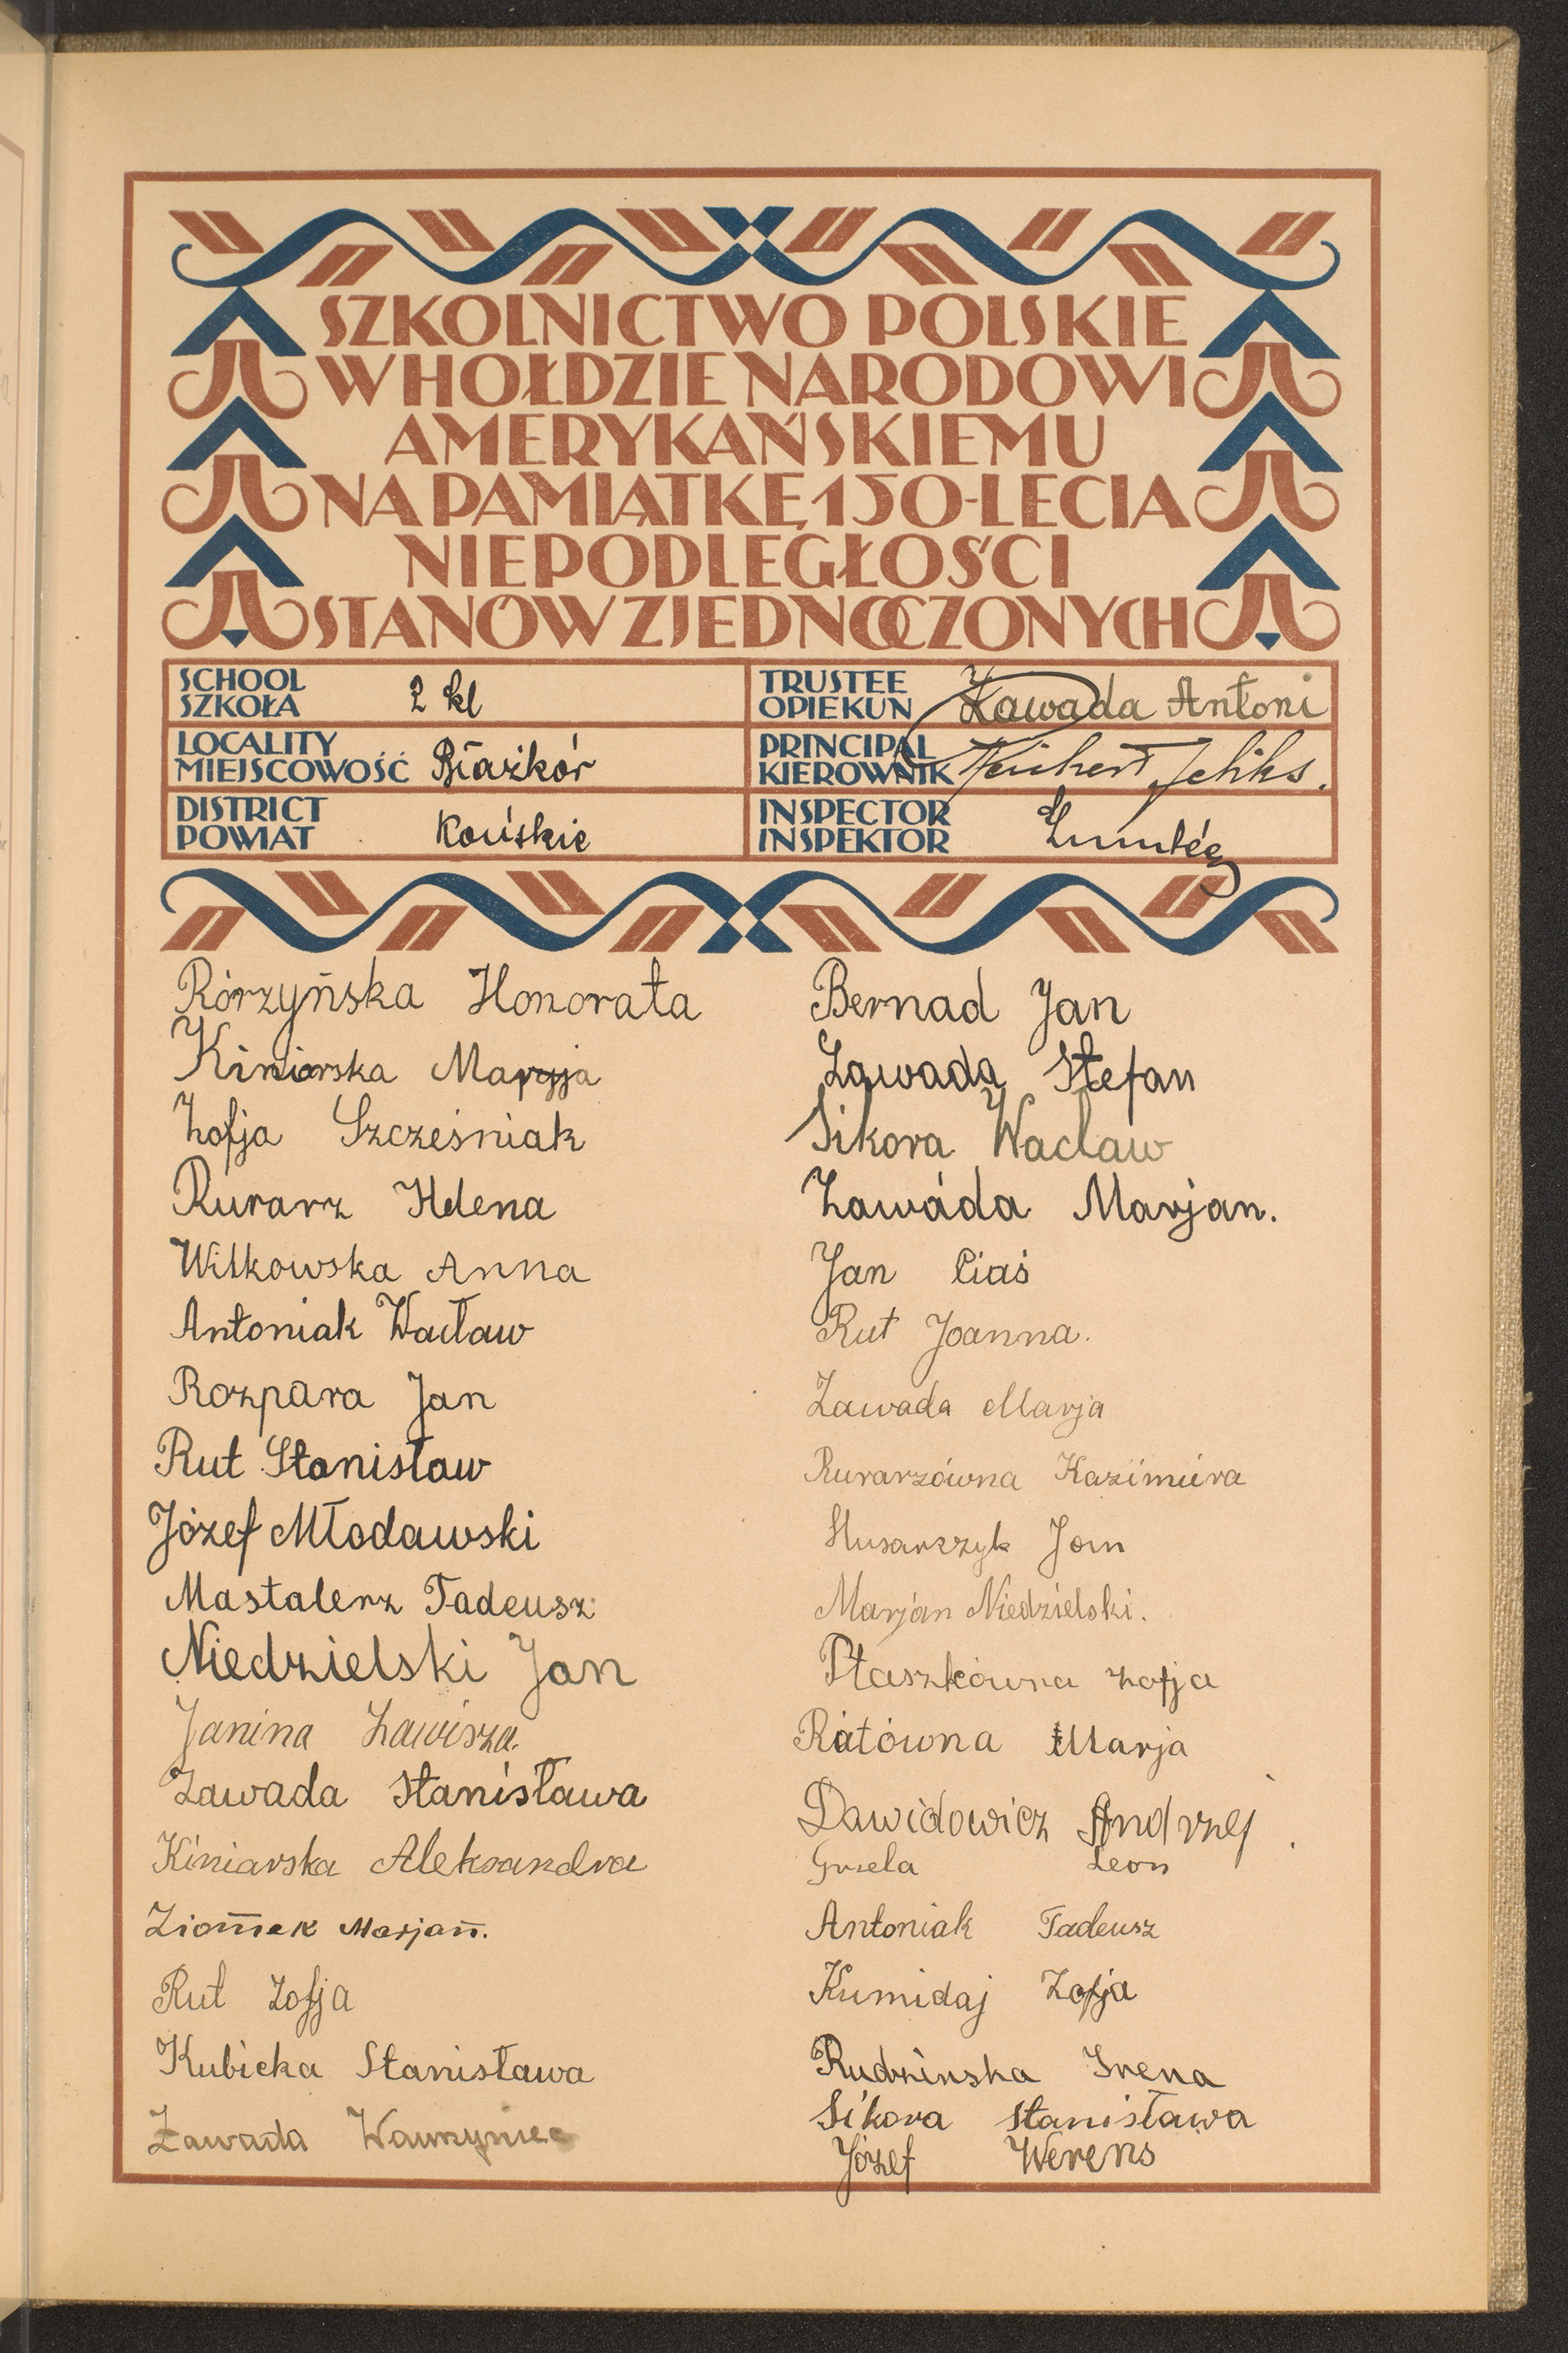 SZKOLNICTWO POLSKIE
W HOŁDZIE NARODOWI
AMERYKAŃSKIEMU
NA PAMIĄTKĘ 150-LECIA
NIEPODLEGŁOŚCI
STANÓW ZJEDNOCZONYCH
SCHOOL
SZKOŁA 2 kl
TRUSTEE
OPIEKUN Zawada Antoni
LOCALITY
MIEJSCOWOŚĆ
PRINCIPAL
KIEROWNIK
DISTRICT
POWIAT Końskie
INSPECTOR
INSPEKTOR
Rórzyńska Honorata
Kiniorska
Zofja Szcześniak
Rurarz Helena
Wilkowska Anna
Antoniak Wacław
Rozpara Jan
Rut Stanisław
Józef Młodawski
Mastalerz Tadeusz
Niedzielski Jan
Janina Zawisza.
Zawada Stanisława
Kiniarska Aleksandra
Ziomek Marjan.
Rut Zofja
Kubicka Stanisława
Zawada Wawrzyniec
Bernad Jan
Zawada Stefan
Sikora Wacław
Zawáda Marjan.
Jan
Rut Joanna.
Zawada Marja
Rurarzówna Kazimiéra
Jan
Marjan Niedzielski.
Ptaszkówna Zofja
Ratówna Marja
Dawidowicz Andrzej
Grzela Leon
Antoniak Tadeusz
Kumidaj Zofja
Rudzinska Irena
Sikora Stanisława
Józef Werens